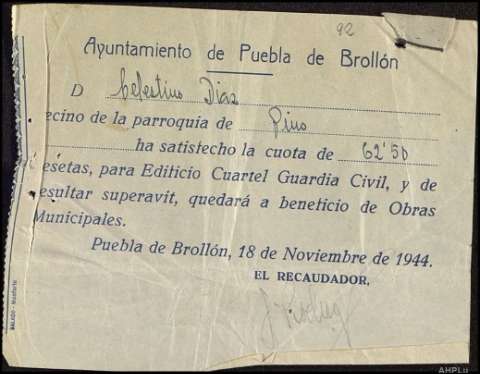 92
Ayuntamiento de Puebla de Brollón
D Celestino Díaz
ecino de la parroquia de Pino
ha satisfecho la cuota de 62'50
esetas, para Edificio Cuartel Guardia Civil, y de
esultar superavit, quedará a beneficio de Obras
Municipales.
Puebla de Brollón, 18 de Noviembre de 1944.
EL RECAUDADOR,
AHPLu